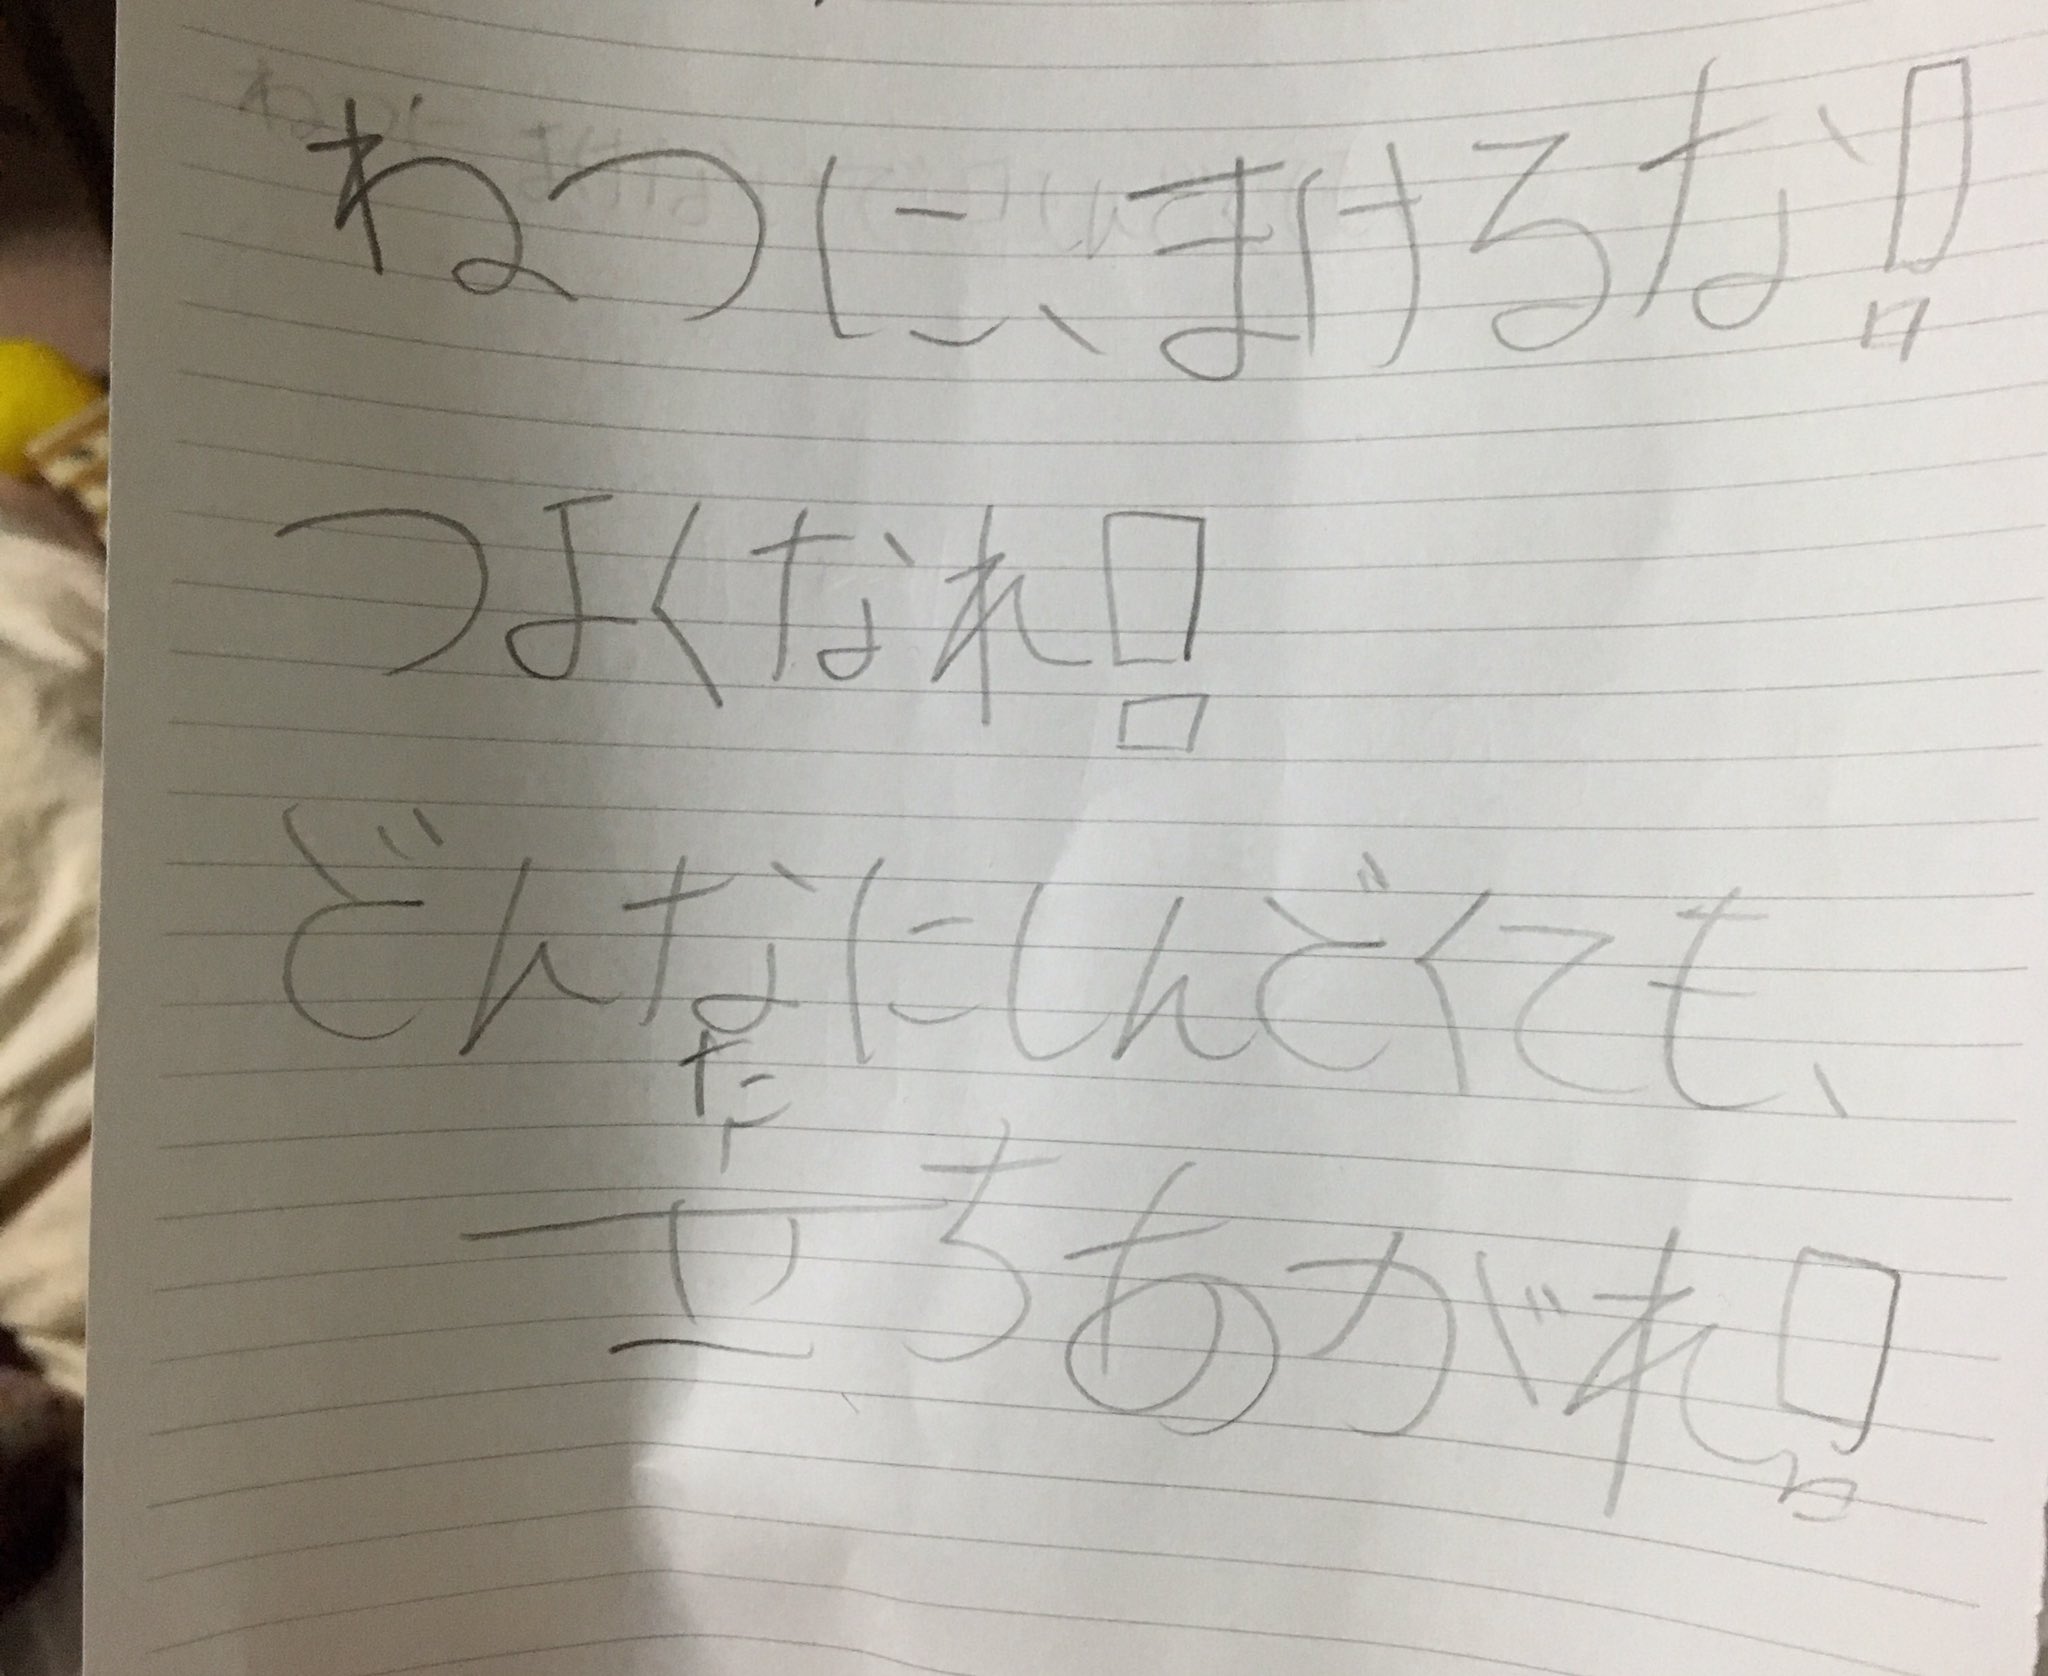 ねつに、まけるな!
つよくなれ!
どんなにしんどくても、
た
立ちあがれ!